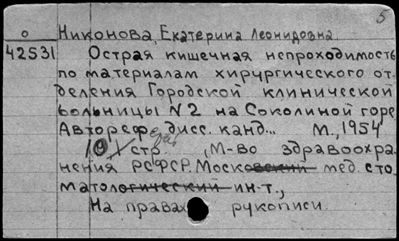 5
о Никонова, Екатерина Леонидовна.
42531 Острая кишечная непроходимость
по материалам хирургического от-
деления Городской клинической
больницы N2 на Соколиной горе
Автореф. дисс. канд... М., 1954
стр. , М-во здравоохра-
нения РСФСР. Московский мед. сто-
матологический ин-т.,
На правах рукописи.